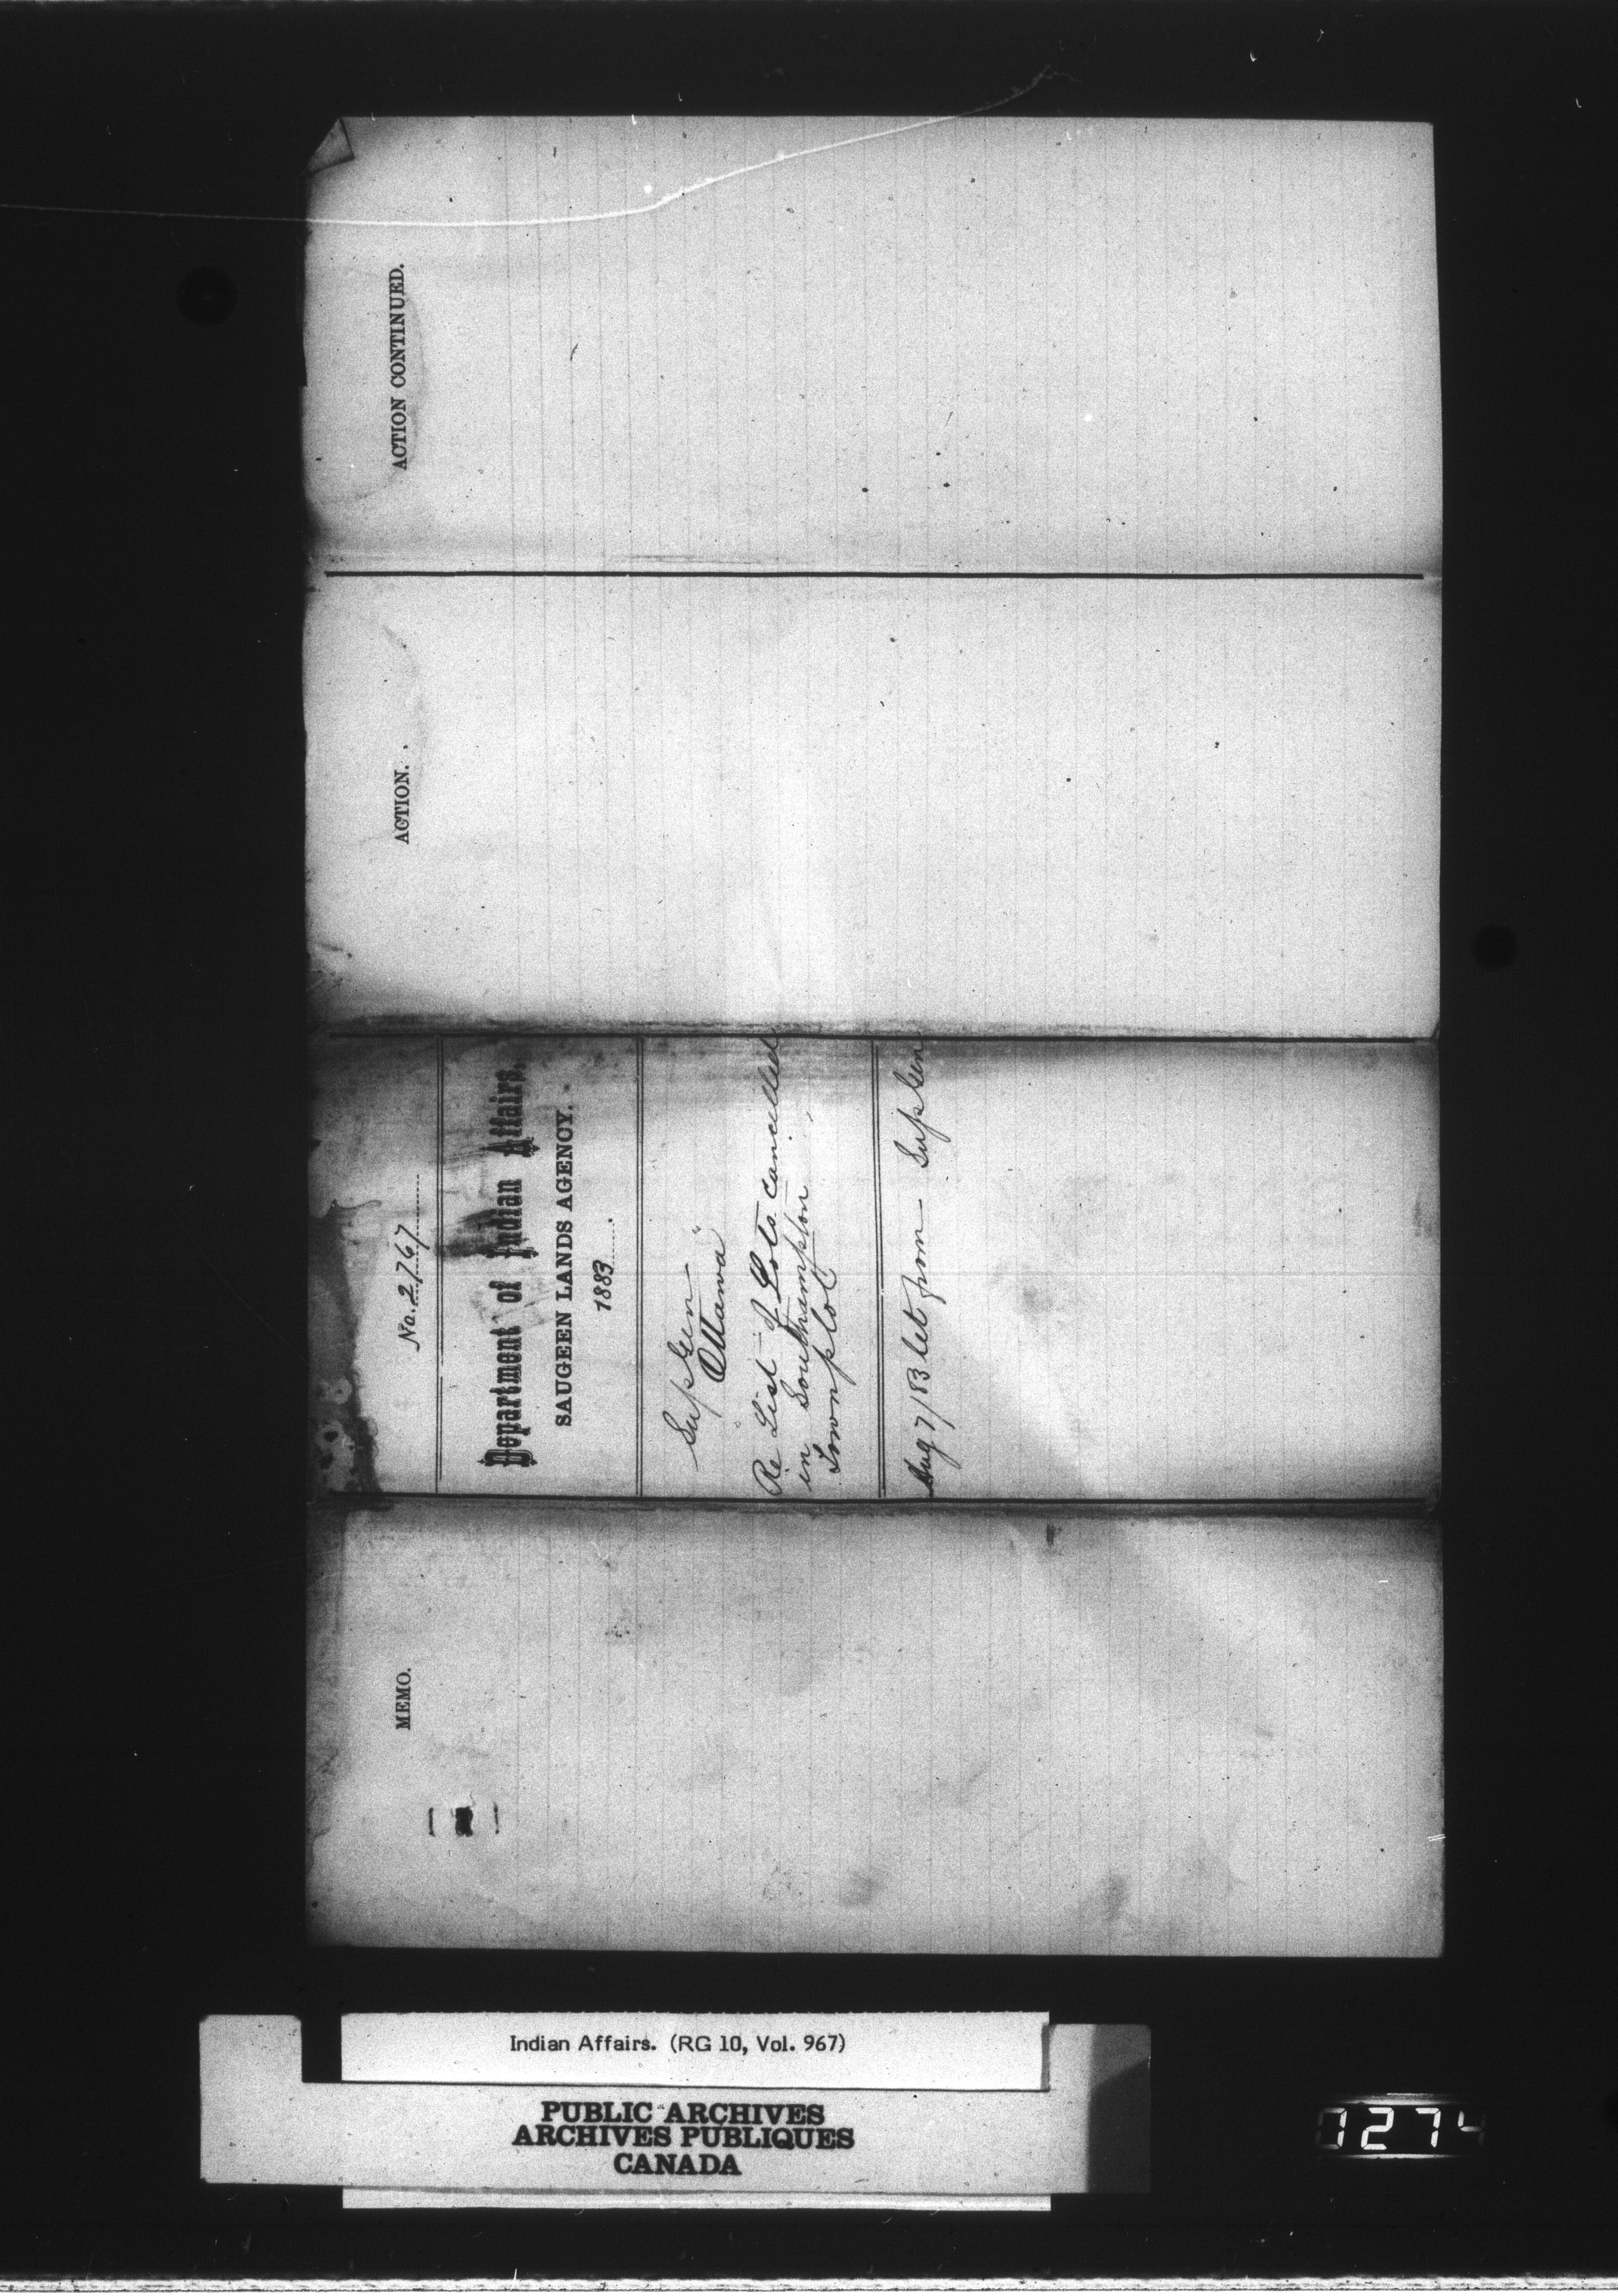 ACTION CONTINUED.
ACTION.
No. 2767
Department of Indian Affairs.
SAUGEEN LANDS AGENCY.
1883
Sup Gen
Ottawa
Re List of Lots cancelled
in Southampton
Townplot
Aug 7/83 let from Sup Gen
MEMO.
Indian Affairs. (RG 10, Vol. 967)
PUBLIC ARCHIVES
ARCHIVES PUBLIQUES
CANADA
0274